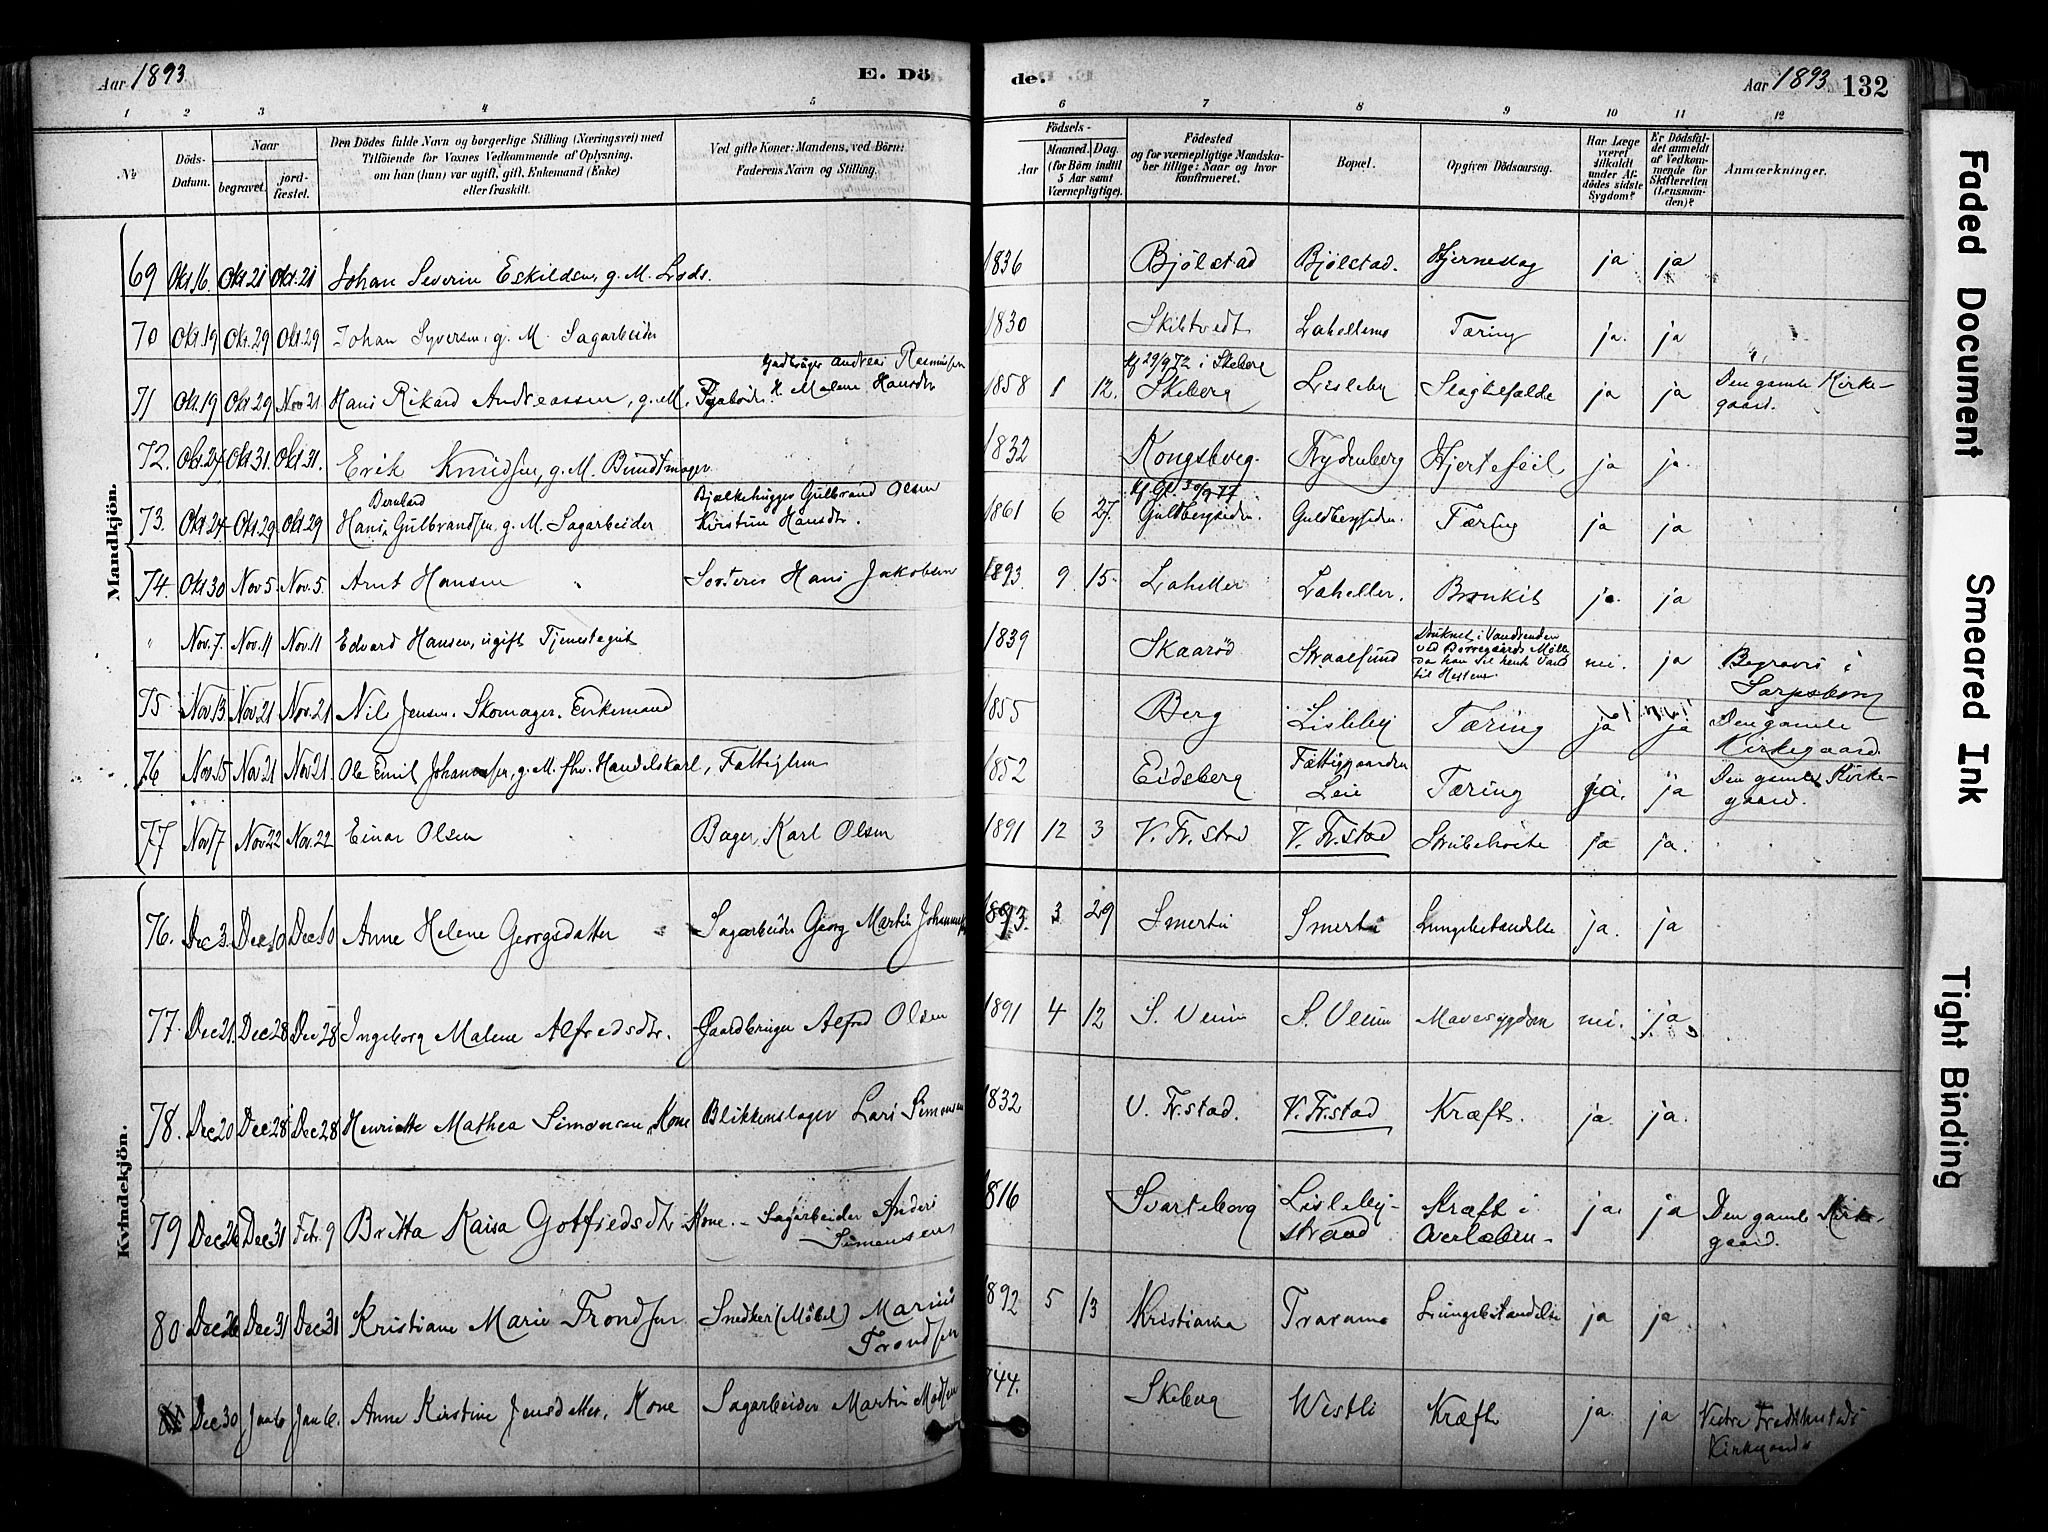 Aar 1893 E. Dö de. Aar 1893 132
1 2 3 4 5 6 7 8 9 10 11 12
№
Döds-Datum.
Naar
begravet.
jord-fæstet.
Den Dödes fulde Navn og borgerlige Stilling (Næringsvei) med
Tilföiende for Voxnes Vedkommende af Oplysning,
om han (hun) var ugift, gift, Enkemand (Enke)
eller fraskilt.
Ved gifte Koner: Mandens, ved Börn:
Faderens Navn og Stilling.
Födsels-
Aar
Maaned. Dag.
(for Börn indtil
5 Aar samt
Værnepligtige).
Födested
og for værnepligtige Mandska-
ber tillige: Naar og hvor
konfirmeret.
Bopæl.
Opgiven Dödsaarsag.
Har Læge
været
tilkaldt
under Af-
dödes sidste
Sygdom?
Er Dödsfal-
det anmeldt
af Vedkom-
mende for
Skifteretten
(Lensman-
den)?
Anmærkninger.
Mandkjön.
69 Okt 16. Okt 21 Okt. 21 Johan Severin Eskildsen, g. M. Lods. 1836 Bjölstad Bjölstad. Hjerneslag ja ja
70 Okt. 19 Okt. 29 Okt. 29 Johan Syversen, g. M. Sagarbeider 1830 Skibtvedt Lahellerne Tæring ja. ja "
Gadbruger Andreas Rasmussen
kf 29/9 72 i Skeberg
71 Okt. 19 Okt 29 Nov 21 Hans Rikard Andreassen, g. M. H. Malene Hansdtr 1858 1 12. Skeberg Lisleby Slagtilfælde ja ja Den gamle Kirke-
gaard.
72. Okt. 24, Okt 31. Okt 31. Erik Knudsen, g. M. Bundtmager 1832 Kongsberg. Frydenberg Hjertefeil ja ja.
Bernhard
Bjælkehugger Gulbrand Olsen
73. Okt 24. Okt 29 Okt 29 Hans Gulbrandsen, g. M. Sagarbeider Kirstine Hansdtr. 1861 6 27. Guldbergsiden. Guldbergsiden. Tæring ja ja
74. Okt 30 Nov 5 Nov. 5. Arnt Hansen Sorterer Hans Jakobsen 1893 9 15. Laheller Laheller. Bronkit ja. ja
" Nov. 7. Nov. 11 Nov. 11 Edvard Hansen, ugift Tjenestegut 1839 Skaaröd Straalsund Druknet i Vandrenden
ved Borregaards Mölle
da han skl hente Vand
til Hestene. nei. ja Begravet i
Sarpsborg
75. Nov. 13 Nov. 21 Nov. 21 Nils Jensen. Skomager. Enkemand 1855 Berg Lisleby Tæring ja ja Den gamle
Kirkegaard.
76 Nov. 15 Nov 21 Nov 21. Ole Emil Johannesen, g. M. fhv. Handelskarl, Fattiglem 1852 Eidsberg Fattiggaarden
Leie Tæring ja. ja Den gamle Kirke-
gaard.
77 Nov 17 Nov 22 Nov. 22 Einar Olsen Bager, Karl Olsen 1891 12 3 V. Fr. stad V. Fr. stad Strubehoste ja ja.
Kvindekjön.
76. Dec 3. Dec 10 Dec 10 Anne Helene Georgsdatter Sagarbeider Georg Martin 1893. 3 29 Smertu Smertu Lungebetændelse ja. ja
77. Dec 21. Dec 28 Dec 28 Ingeborg Malene Alfredsdtr. Gaardbruger Alfred Olsen 1891 4 12 S. Veum S. Veum Mavesygdom nei. ja
78. Dec 20 Dec 28 Dec 28 Henriette Mathea Simonsen Kone Blikkenslager Lars Simonsen 1832 V. Fr. stad. V. Fr. stad Kræft. ja. ja.
79 Dec 26 Dec 31 Febr. 9 Britta Kaisa Gotfredsdtr Kone. Sagarbeider Anders
Simensen 1816 Svarteborg Lisleby-
strand Kræft i
Overlæben ja. ja Den gamle Kirke-
gaard.
80. Dec 26 Dec 31 Dec 31 Kristiane Marie Trondsen Snedker (Möbel) Marius
Trondsen 1892 5 13 Kristiania Trarane Lungebetændelse ja ja
Dec 30 Jan 6 Jan 6. Anne Kirstine Jensdatter, Kone Sagarbeider Martin Madsen 44. Skeberg Westli Kræft ja. ja Vestre Fredrikstads
Kirkegaard
Faded Document
Smeared Ink
Tight Binding